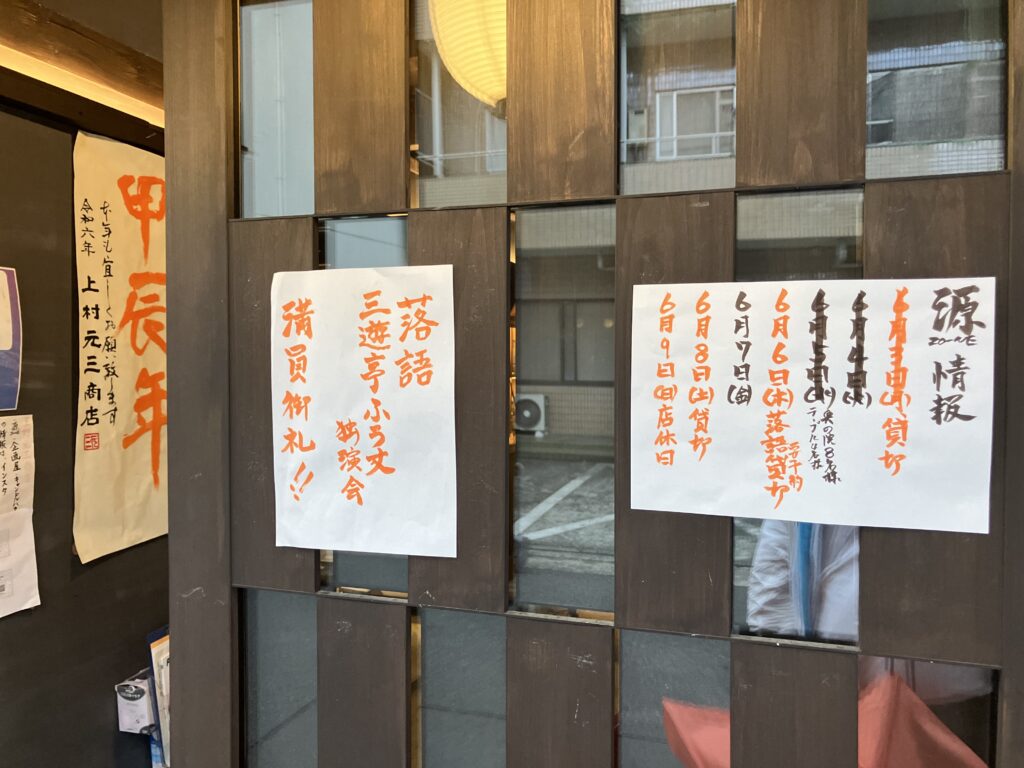 源
情報
6月3日(月)貸切
6月4日(火)
6月5日(水)奥の演8名様
6月6日(木)落語貸切
若干約
6月7日(金)
6月8日(土)貸切
6月9日(日)店休日
落語
三遊亭ふう丈
独演会
満員御礼!!
甲辰年
本年も宜しくお願い致します
令和六年
上村元三商店